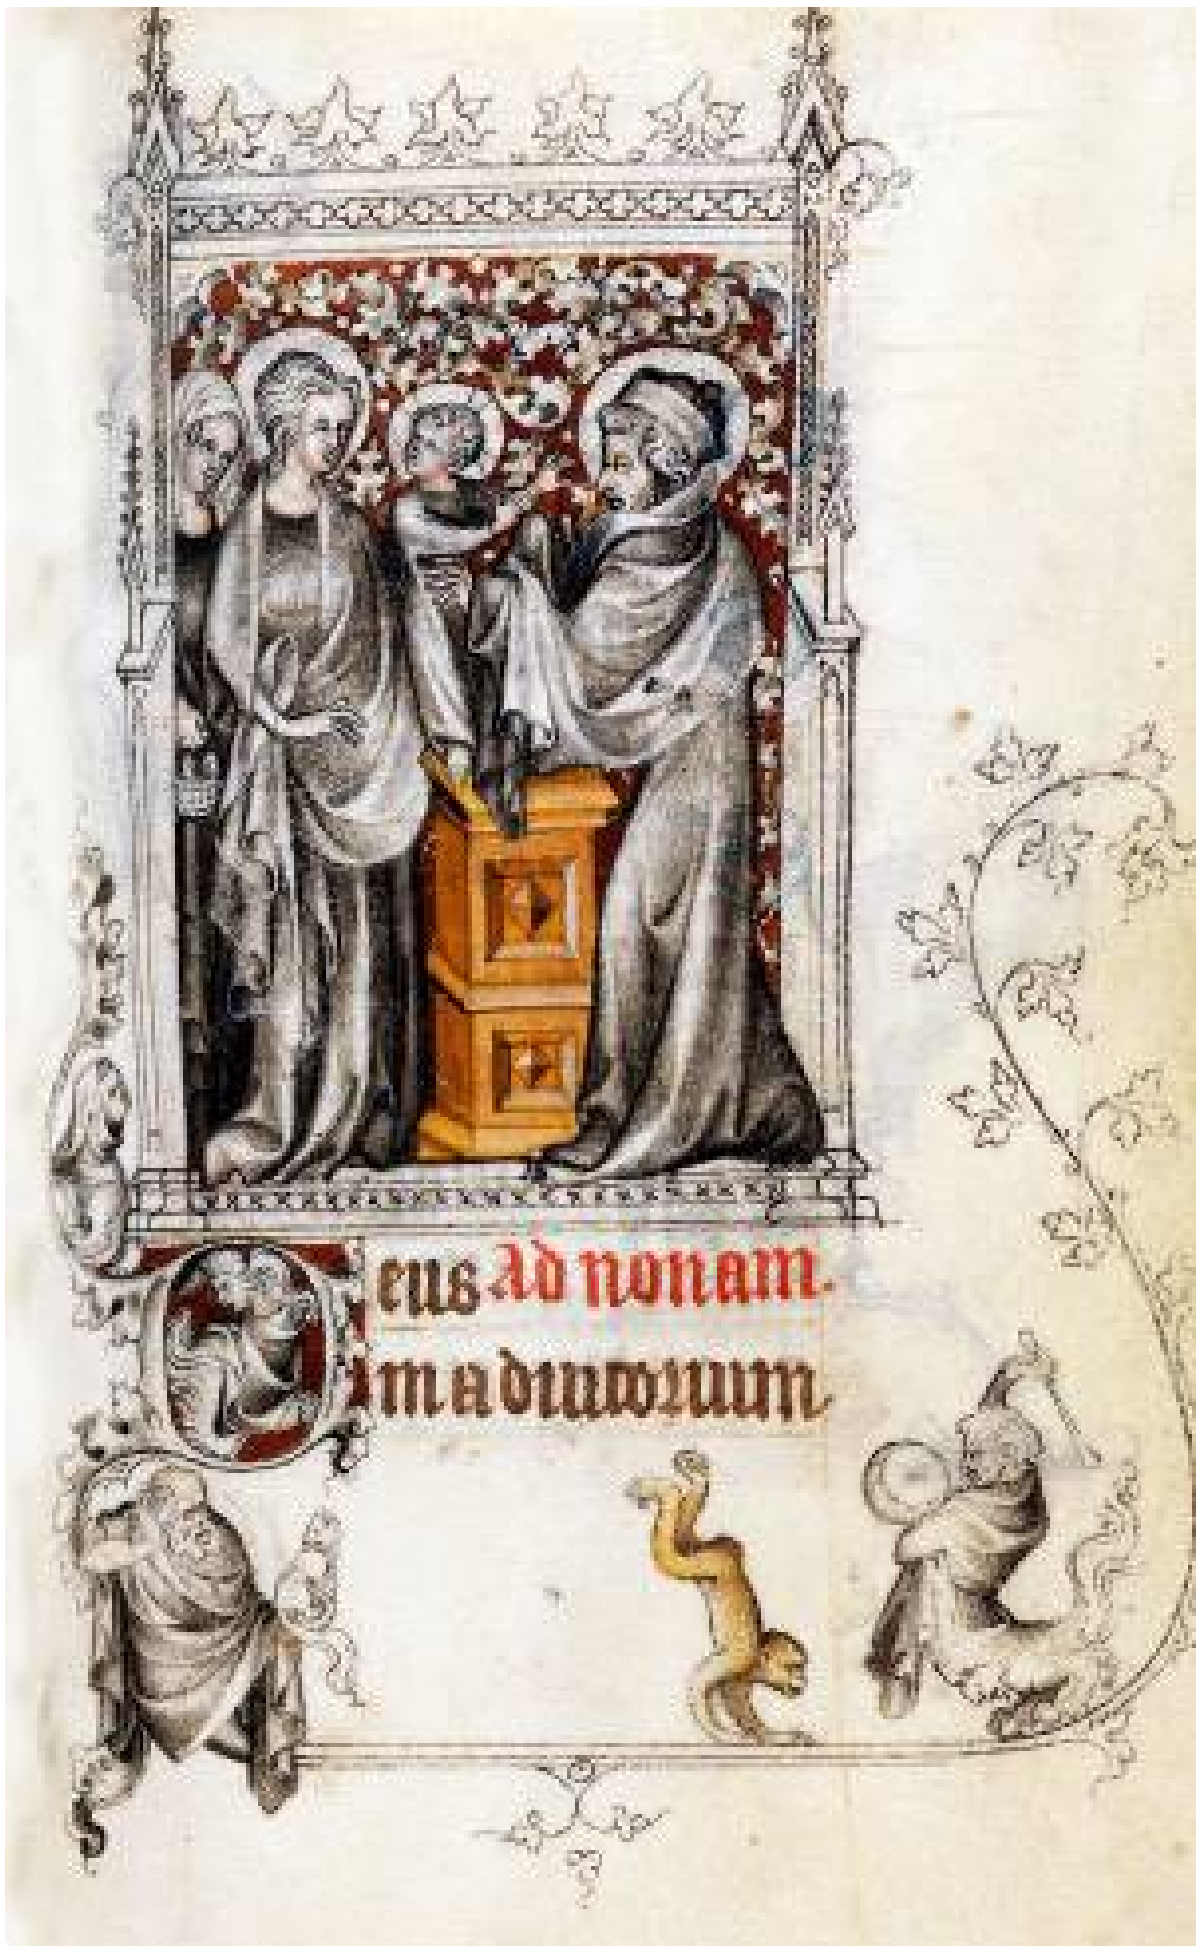 Deus Ad nonam.
in adiutorium